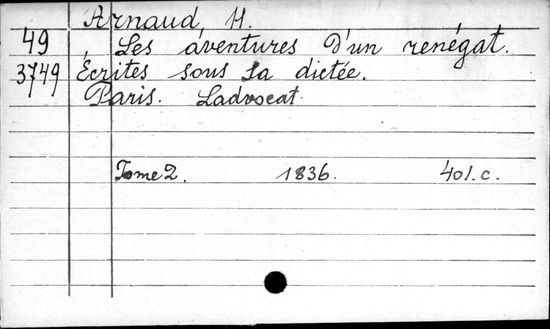 Arnaud, H.
49 Les aventures d'un renégat.
3749 Écrites sous sa dictée.
Paris. Ladvocat.
Tome 2. 1836. 401.c.